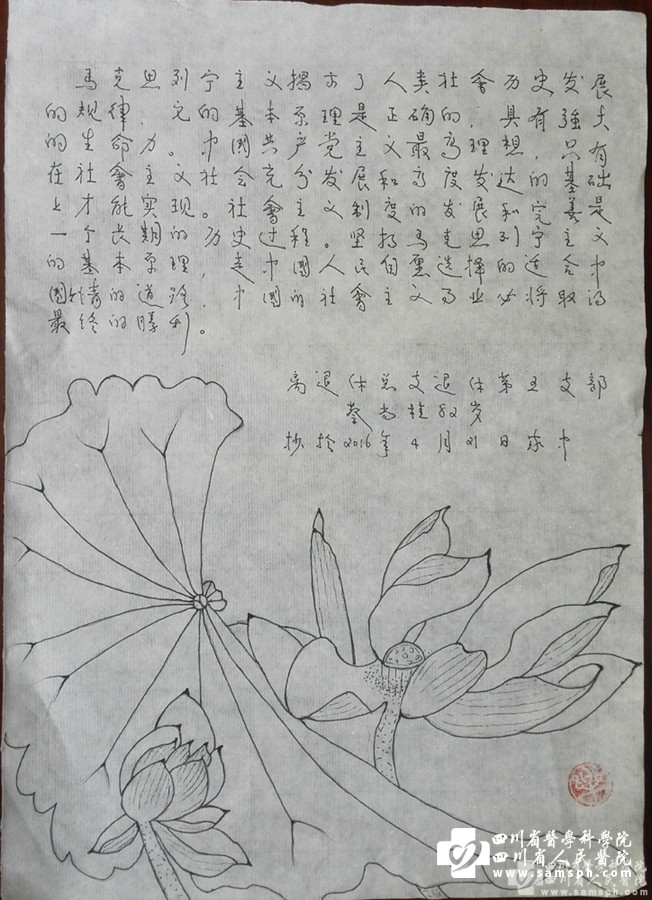 马克思列宁主义揭示了人类社会历史发展
的规律,它的基本原理是正确的,具有强大
的生命力。中国共产党主义最高理想,只有
在社会主义社会充分发展和高度发达的基础
上才能实现。社会主义制度的发展和完善是
一个长期的历史过程。坚持马克思列宁主义
的基本原理,走中国人民自愿选择的适合中
国情的道路,中国的社会主义事业必将取得
最终的胜利。
离退休总支退休第五支部
尚桂 岁
抄於2016年4月21日家中
四川省醫學科學院
四川省人民醫院
www.samsph.com